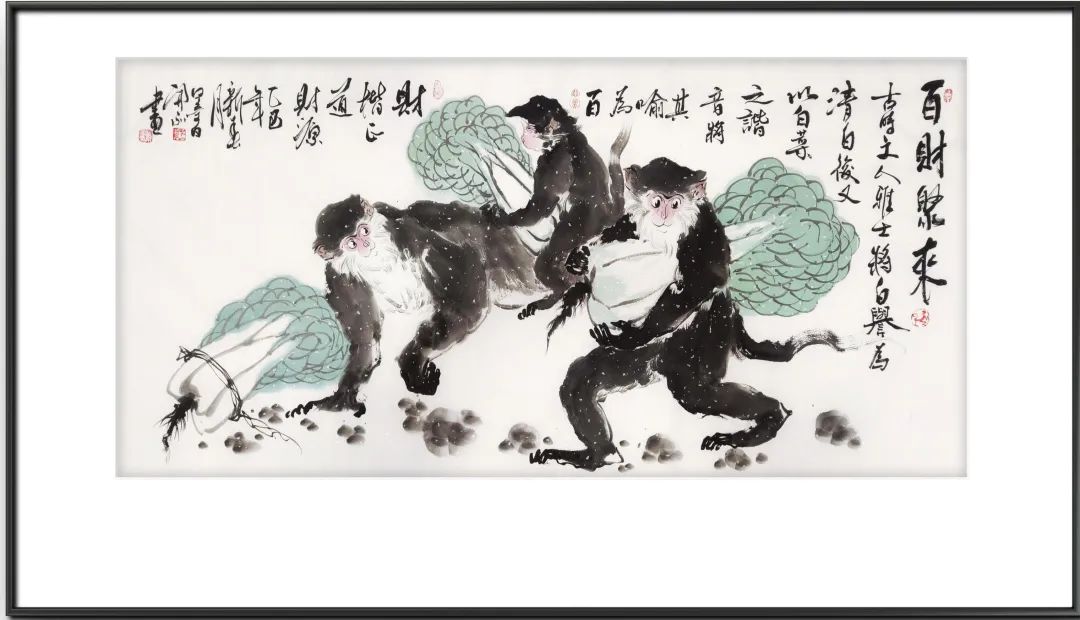 百財聚來
古時文人雅士將白譽為
清白後又
以白菜
之諧
音將
其
喻
為
百
財
正
道
財源
乙巳
年
書畫